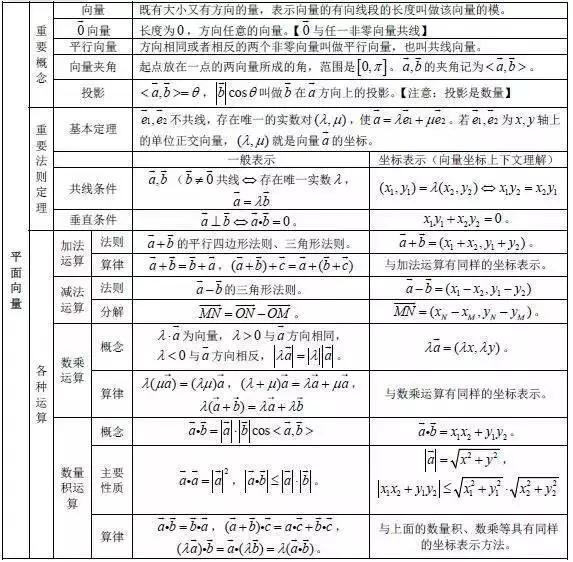 平面向量
重要概念
向量 既有大小又有方向的量,表示向量的有向线段的长度叫做该向量的模。
0⃗向量 长度为0,方向任意的向量。【0⃗与任一非零向量共线】
平行向量 方向相同或者相反的两个非零向量叫做平行向量,也叫共线向量。
向量夹角 起点放在一点的两向量所成的角,范围是[0,π]。a⃗,b⃗的夹角记为<a⃗,b⃗>。
投影 <a⃗,b⃗>=θ,|b⃗|cosθ叫做b⃗在a⃗方向上的投影。【注意:投影是数量】
重要法则定理
基本定理 e⃗₁,e⃗₂不共线,存在唯一的实数对(λ,μ),使a⃗=λe⃗₁+μe⃗₂。若e⃗₁,e⃗₂为x,y轴上
的单位正交向量,(λ,μ)就是向量a⃗的坐标。
一般表示 坐标表示(向量坐标上下文理解)
共线条件 a⃗,b⃗(b⃗≠0⃗共线⇔存在唯一实数λ,
a⃗=λb⃗ (x₁,y₁)=λ(x₂,y₂)⇔x₁y₂=x₂y₁
垂直条件 a⃗⊥b⃗⇔a⃗•b⃗=0。 x₁y₁+x₂y₂=0。
各种运算
加法运算
法则 a⃗+b⃗的平行四边形法则、三角形法则。 a⃗+b⃗=(x₁+x₂,y₁+y₂)。
算律 a⃗+b⃗=b⃗+a⃗,(a⃗+b⃗)+c⃗=a⃗+(b⃗+c⃗) 与加法运算有同样的坐标表示。
减法运算
法则 a⃗-b⃗的三角形法则。 a⃗-b⃗=(x₁-x₂,y₁-y₂)
分解 MN⃗=ON⃗-OM⃗。 MN⃗=(x_N-x_M,y_N-y_M)。
数乘运算
概念 λ·a⃗为向量,λ>0与a⃗方向相同,
λ<0与a⃗方向相反,|λa⃗|=|λ||a⃗|。 λa⃗=(λx,λy)。
算律 λ(μa⃗)=(λμ)a⃗,(λ+μ)a⃗=λa⃗+μa⃗,
λ(a⃗+b⃗)=λa⃗+λb⃗ 与数乘运算有同样的坐标表示。
数量积运算
概念 a⃗•b⃗=|a⃗|·|b⃗|cos<a⃗,b⃗> a⃗•b⃗=x₁x₂+y₁y₂。
主要性质 a⃗•a⃗=|a⃗|²,|a⃗•b⃗|≤|a⃗|·|b⃗|。 |a⃗|=√(x²+y²),
|x₁x₂+y₁y₂|≤√(x₁²+y₁²)·√(x₂²+y₂²)
算律 a⃗•b⃗=b⃗•a⃗,(a⃗+b⃗)•c⃗=a⃗•c⃗+b⃗•c⃗,
(λa⃗)•b⃗=a⃗•(λb⃗)=λ(a⃗•b⃗)。 与上面的数量积、数乘等具有同样
的坐标表示方法。